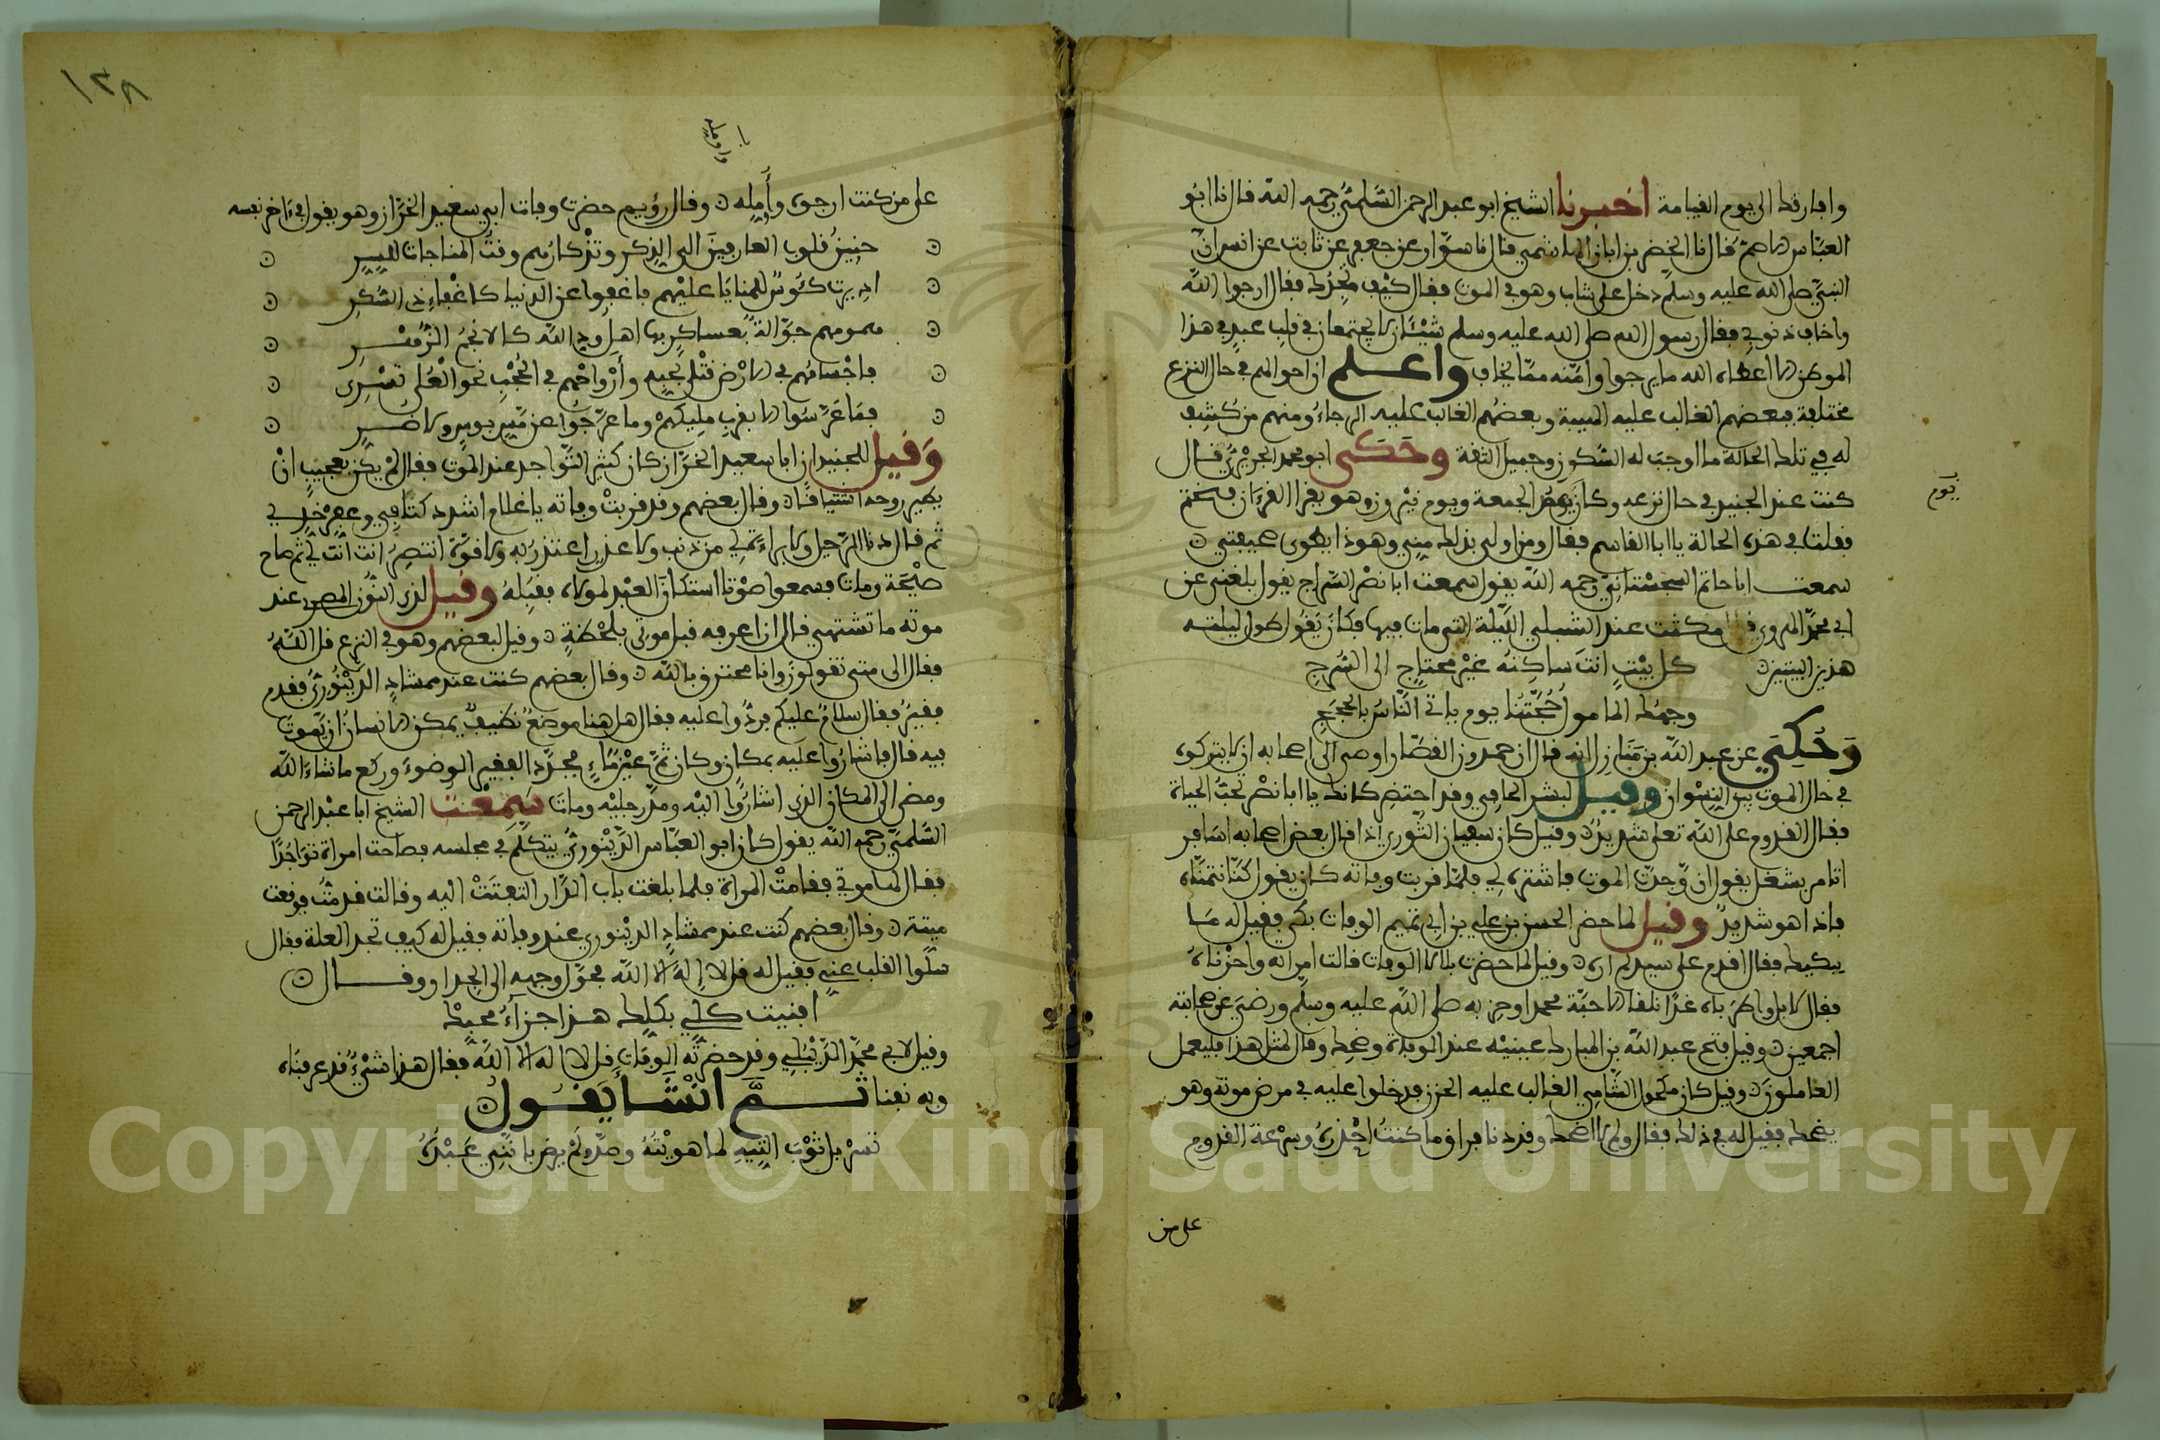 وافارقك الى يوم القيامة اخبرنا الشيخ ابو عبد الرحمن السُّلَمِيُّ رحمه الله قال نا ابو
العبّاس الاصمّ قال نا الخضر بن ابان الهاشمي قال نا سوّار عن جعفر عن ثابت عن انس ان
النبيّ صلى الله عليه وسلم دخل على شاب وهو في الموت فقال كيف تجدك فقال ارجوا الله
واخاف ذنوبي فقال رسول الله صلى الله عليه وسلم شيئان لا يجتمعان في قلب عبد في هذا
الموطن الا اعطاه الله ما يرجوا وامنه مما يخاف واعلم ان احوالهم في حال النزع
مختلفة فبعضهم الغالب عليه الهيبة وبعضهم الغالب عليه الرجاء ومنهم من كشف
له في تلك الحالة ما اوجب له السكون وجميل الثقة وحكى ابو محمد الجريري قال
كنت عند الجنيد في حال نزعه وكان يوم الجمعة ويوم نيروز وهو يقرا القرءان فختم
فقلت في هذه الحالة يا ابا القاسم فقال ومن اولى بذلك مني وهو ذا تطوى صحيفتي
سمعت ابا حاتم السجستاني رحمه الله يقول سمعت ابا نصر السراج يقول بلغني عن
ابي محمد الهروي قال مكثت عند الشبلي الليلة التي مات فيها فكان يقول طول ليلته
هذين البيتين كل بيت انت ساكنه غير محتاج الى السُّرج
وجهك المامول حُجّتُنا يوم ياتي الناس بالحجج
وَحُكِيَ عن عبد الله بن مَنازل انه قال ان حمدون القصّار اوصى الى اصحابه ان لا يتركوه
في حال الموت بين النسوان وقيل لبشر الحافي وقد احتضر كانك يا ابا نصر تحب الحياة
فقال القدوم على الله تعلى شديد وقيل كان سفيان الثوري اذا قال بعض اصحابه اسافر
اتامر بشغل يقول ان وجدت الموت فاشتره لي فلما قربت وفاته كان يقول كنا نتمناه
فاذا هو شديد وقيل لما حضر الحسن بن علي بن ابي تميم الوفات بكى فقيل له ما
يبكيك فقال اقدم على سيد لم اره وقيل لما حضرت بلالا الوفات قالت امراته واحُزناه
فقال لا بل واطرباه غدا نلقا الاحبّة محمدا وحزبه صلى الله عليه وسلم ورضى عن صحابته
اجمعين وقيل فتح عبد الله بن المبارك عينيه عند الوفاة وضحك وقال لمثل هذا فليعمل
العاملون وقيل كان مكحول الشامي الغالب عليه الحزن فدخلوا عليه في مرض موته وهو
يضحك فقيل له في ذلك فقال ولم لا اضحك وقد دنا فراق ما كنت احذره وسرعة القدوم
على من
يوم
١٣٨
على من كنت ارجوه وأمله وقال رؤيم حضرت وفات ابي سعيد الخرّاز وهو يقول في ءاخر نفسه
حنين قلوب العارفين الى الذكر وتذكارهم وقت المناجات للسر
اديرت كئوس للمنايا عليهم فاغفوا عن الدنيا كاغفاء ذي الشكر
همومهم جوّالة بمعسكر به اهل ود الله كالانجم الزهر
فاجسامهم في الارض قتلى بحبه وأرواحهم في الحجب نحو العلى تسري
فما عرّسوا الا بقرب مليكهم وما عرّجوا عن مسّ بوس ولا ضر
وقيل للجنيد ان ابا سعيد الخرّاز كان كثير التواجد عند الموت فقال لم يكن بعجيب ان
يطير روحه اشتياقا وقال بعضهم وقد قربت وفاته يا غلام اشدد كتافي وعفر خدي
ثم قال دنا الرحيل ولا براءة لي من ذنب ولا عذر اعتذر به ولا قوة انتصر انت انت لي ثم صاح
صيحة ومات فسمعوا صوتا استكان العبد لمولاه فقبله وقيل لذي النون المصري عند
موته ما تشتهي قال ان اعرفه قبل موتي بلحظة وقيل لبعضهم وهو في النزع قل الله
فقال الى متى تقولون وانا محترق بالله وقال بعضهم كنت عند ممشاد الدينوري فقدم
فقير فقال سلام عليكم فردوا عليه فقال هل هنا موضع نظيف يمكن الانسان ان يموت
فيه قال فاشاروا عليه بمكان وكان ثم عين ماء فجدد الفقير الوضوء وركع ما شاء الله
ومضى الى المكان الذي اشاروا اليه ومد رجليه ومات سمعت الشيخ ابا عبد الرحمن
السلمي رحمه الله يقول كان ابو العباس الدينوري يتكلم في مجلسه فصاحت امراة تواجدا
فقال لها موتي فقامت المراة فلما بلغت باب الدار التفتت اليه وقالت قد متُّ فوقعت
ميتة وقال بعضهم كنت عند ممشاد الدينوري عند وفاته فقيل له كيف تجد العلة فقال
سلوا القلب عني فقيل له قل لا إله الا الله فحوّل وجهه الى الجدار وقال
افنيت كلي بكلك هذا جزآء محبك
وقيل لابي محمد الدّبيلي وقد حضرته الوفات قل لا اله الا الله فقال هذا شيء قد عرفناه
وبه نفنا ثم انشا يقول
تسربل ثوب التيه لما هويته وصدّ ولم يرض بأني عبده